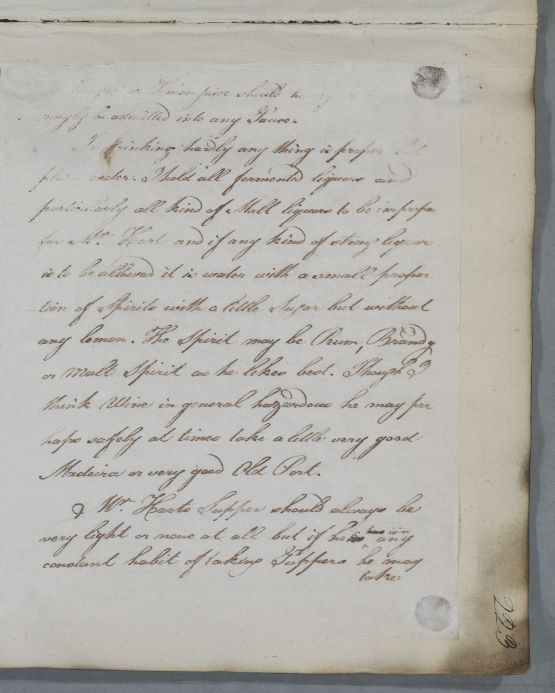 or Lemon juice should
ingly be admitted into any Sauce.
In drinking hardly any thing is proper but
plain water. I hold all fermented liquors and
particularly all kind of Malt liquors to be improper
for Mr. Hart and if any kind of strong liquor
is to be allowed it is water with a small propor
-tion of Spirits with a little Sugar but without
any lemon. The Spirit may be Rum, Brandy
or Malt Spirit as he likes best. Though I
think Wine in general hazardous he may per
haps safely at times take a little very good
Madeira or very good Old Port.
Mr. Harts Supper should always be
very light or none at all but if he has in any
constant habit of taking Suppers he may
take
223